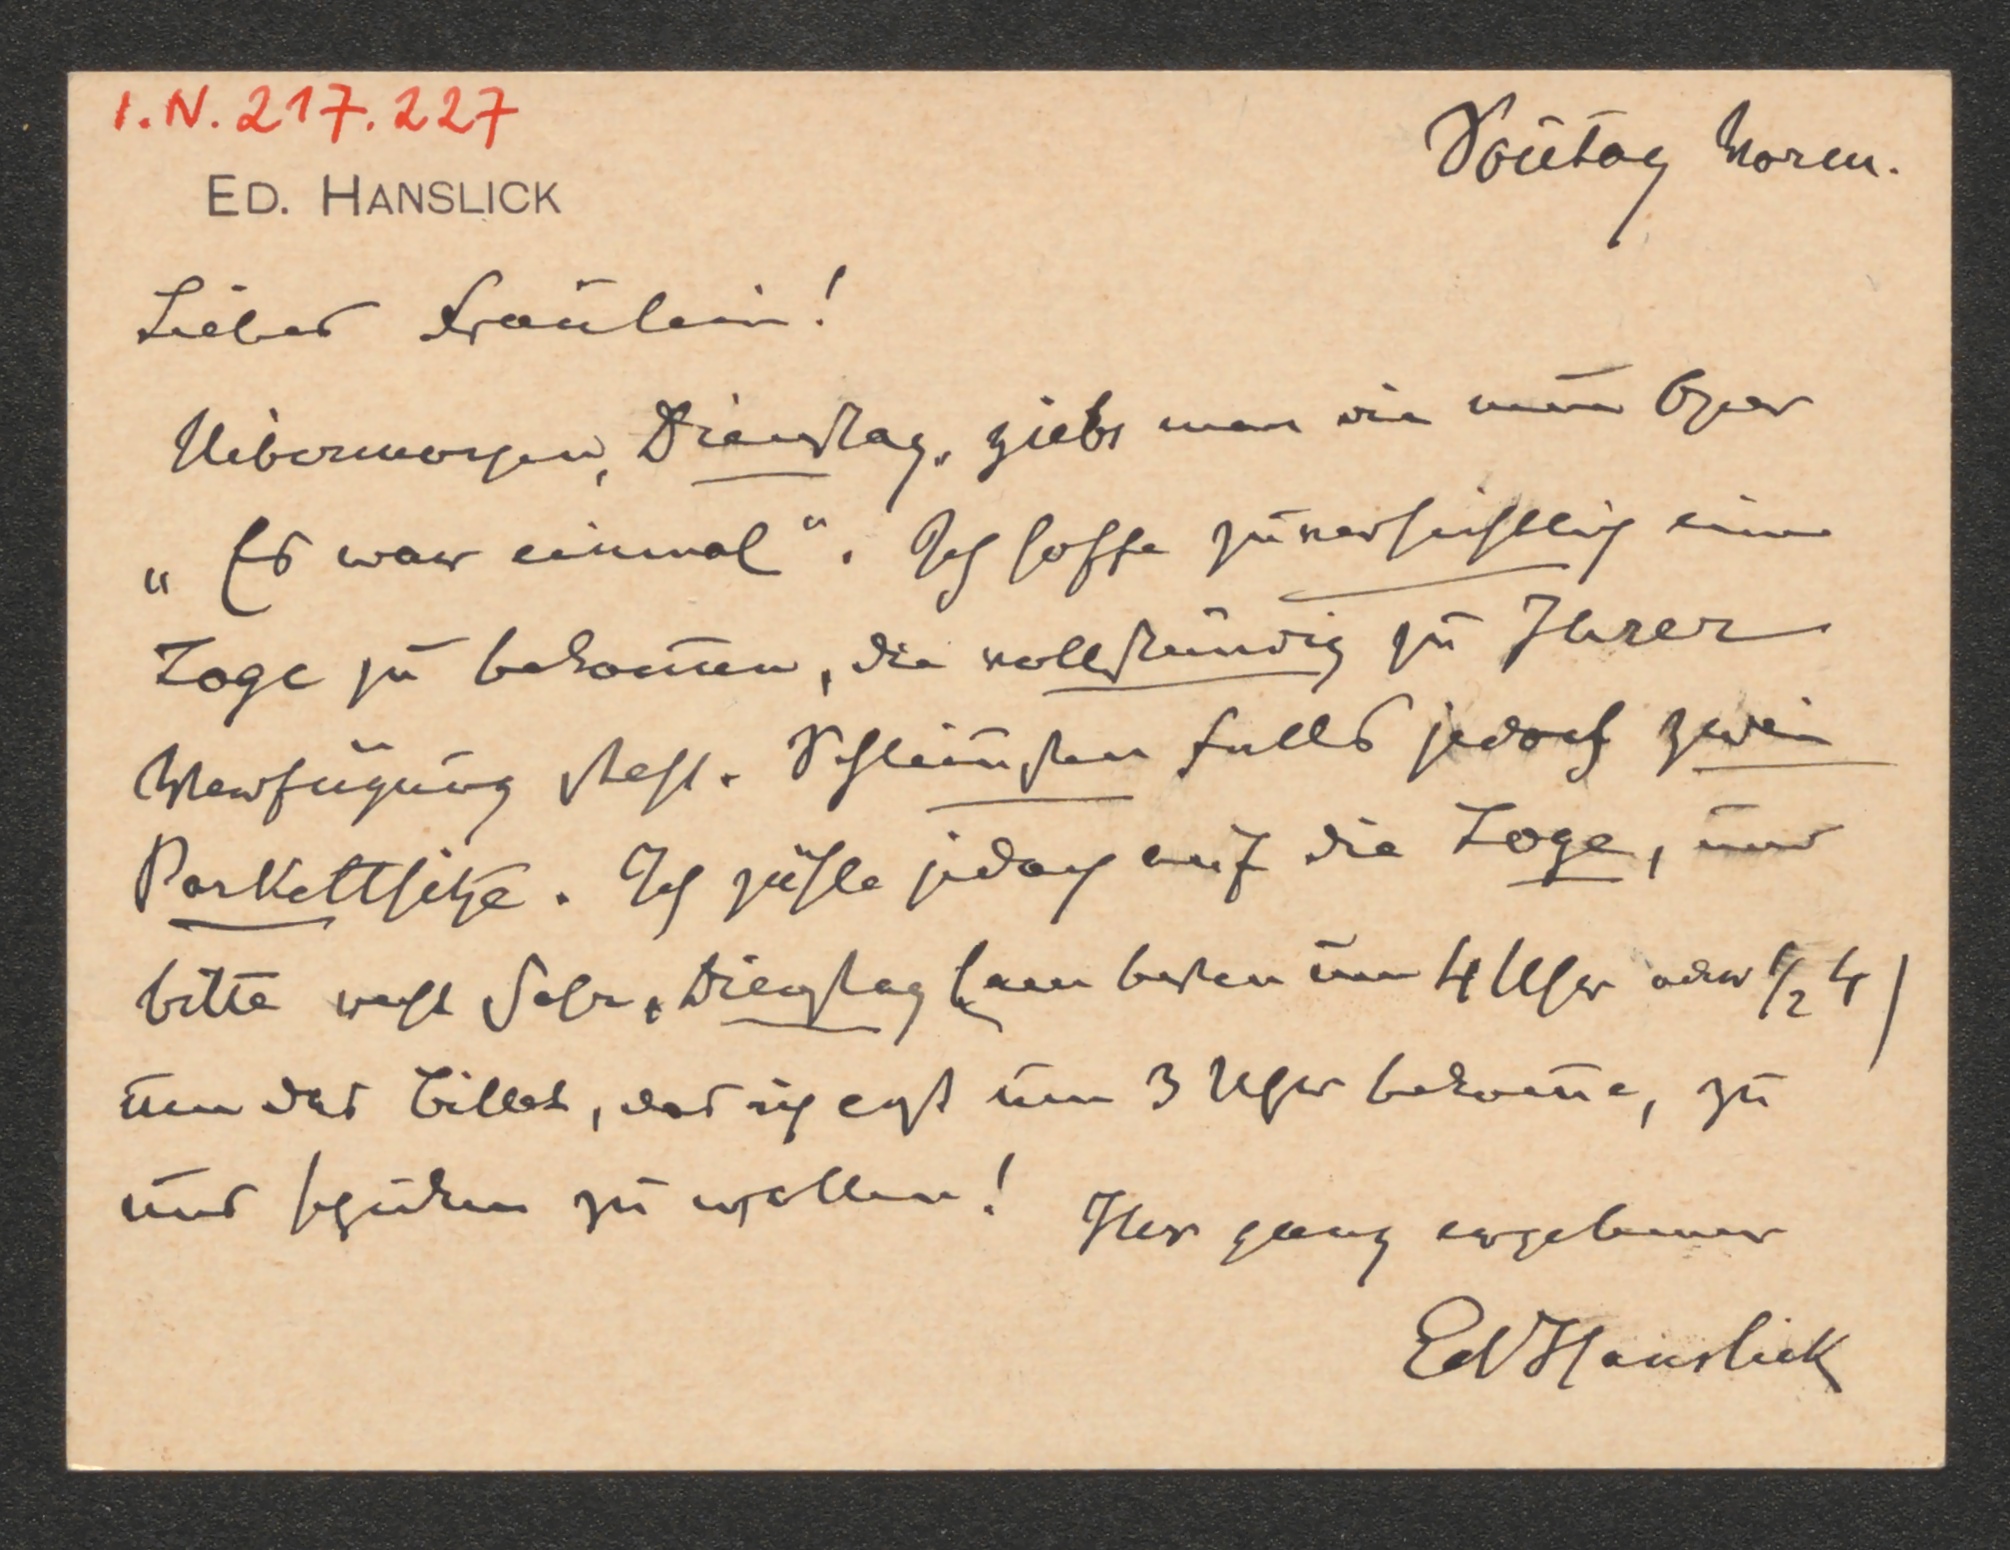 I.N. 217.227
Sontag Vorm.
ED. HANSLICK
Liebes Fräulein!
Uibermorgen, Dienstag, giebt man die neue Oper
„Es war einmal“. Ich hoffe zuversichtlich eine
Loge zu bekomen, die vollständig zu Ihrer
Verfügung steht. Schlimsten falls jedoch zwei
Parkettsitze. Ich zähle jedoch auf die Loge, und
bitte recht sehr, Dienstag (am besten um 4 Uhr oder ½ 4)
um das Billet, das ich erst um 3 Uhr bekome, zu
uns schicken zu wollen!
Ihr ganz ergebener
Ed Hanslick